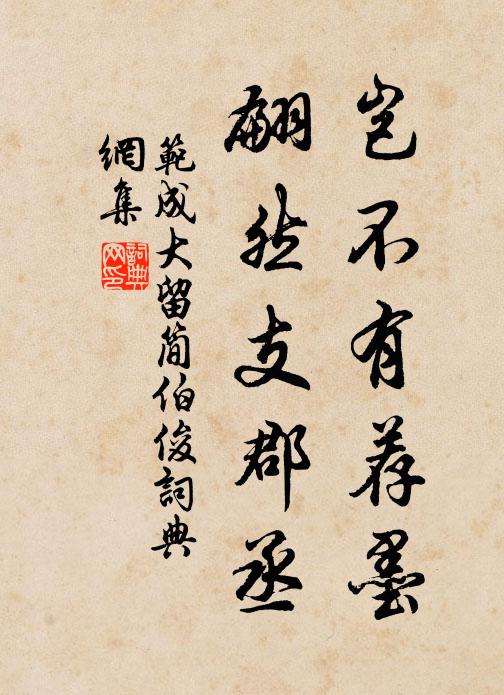 岂不有荐墨
翩然支郡丞
範成大留简伯俊詞典
網集
詞典
网印